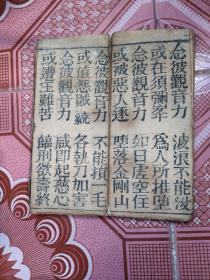 念彼觀音力 波浪不能没
或在須彌峯 爲人所推墮
念彼觀音力 如日虛空住
或被惡人逐 墮落金剛山
念彼觀音力 不能損一毛
或值怨賊繞 各執刀加害
念彼觀音力 咸即起慈心
或遭王難苦 臨刑欲壽終